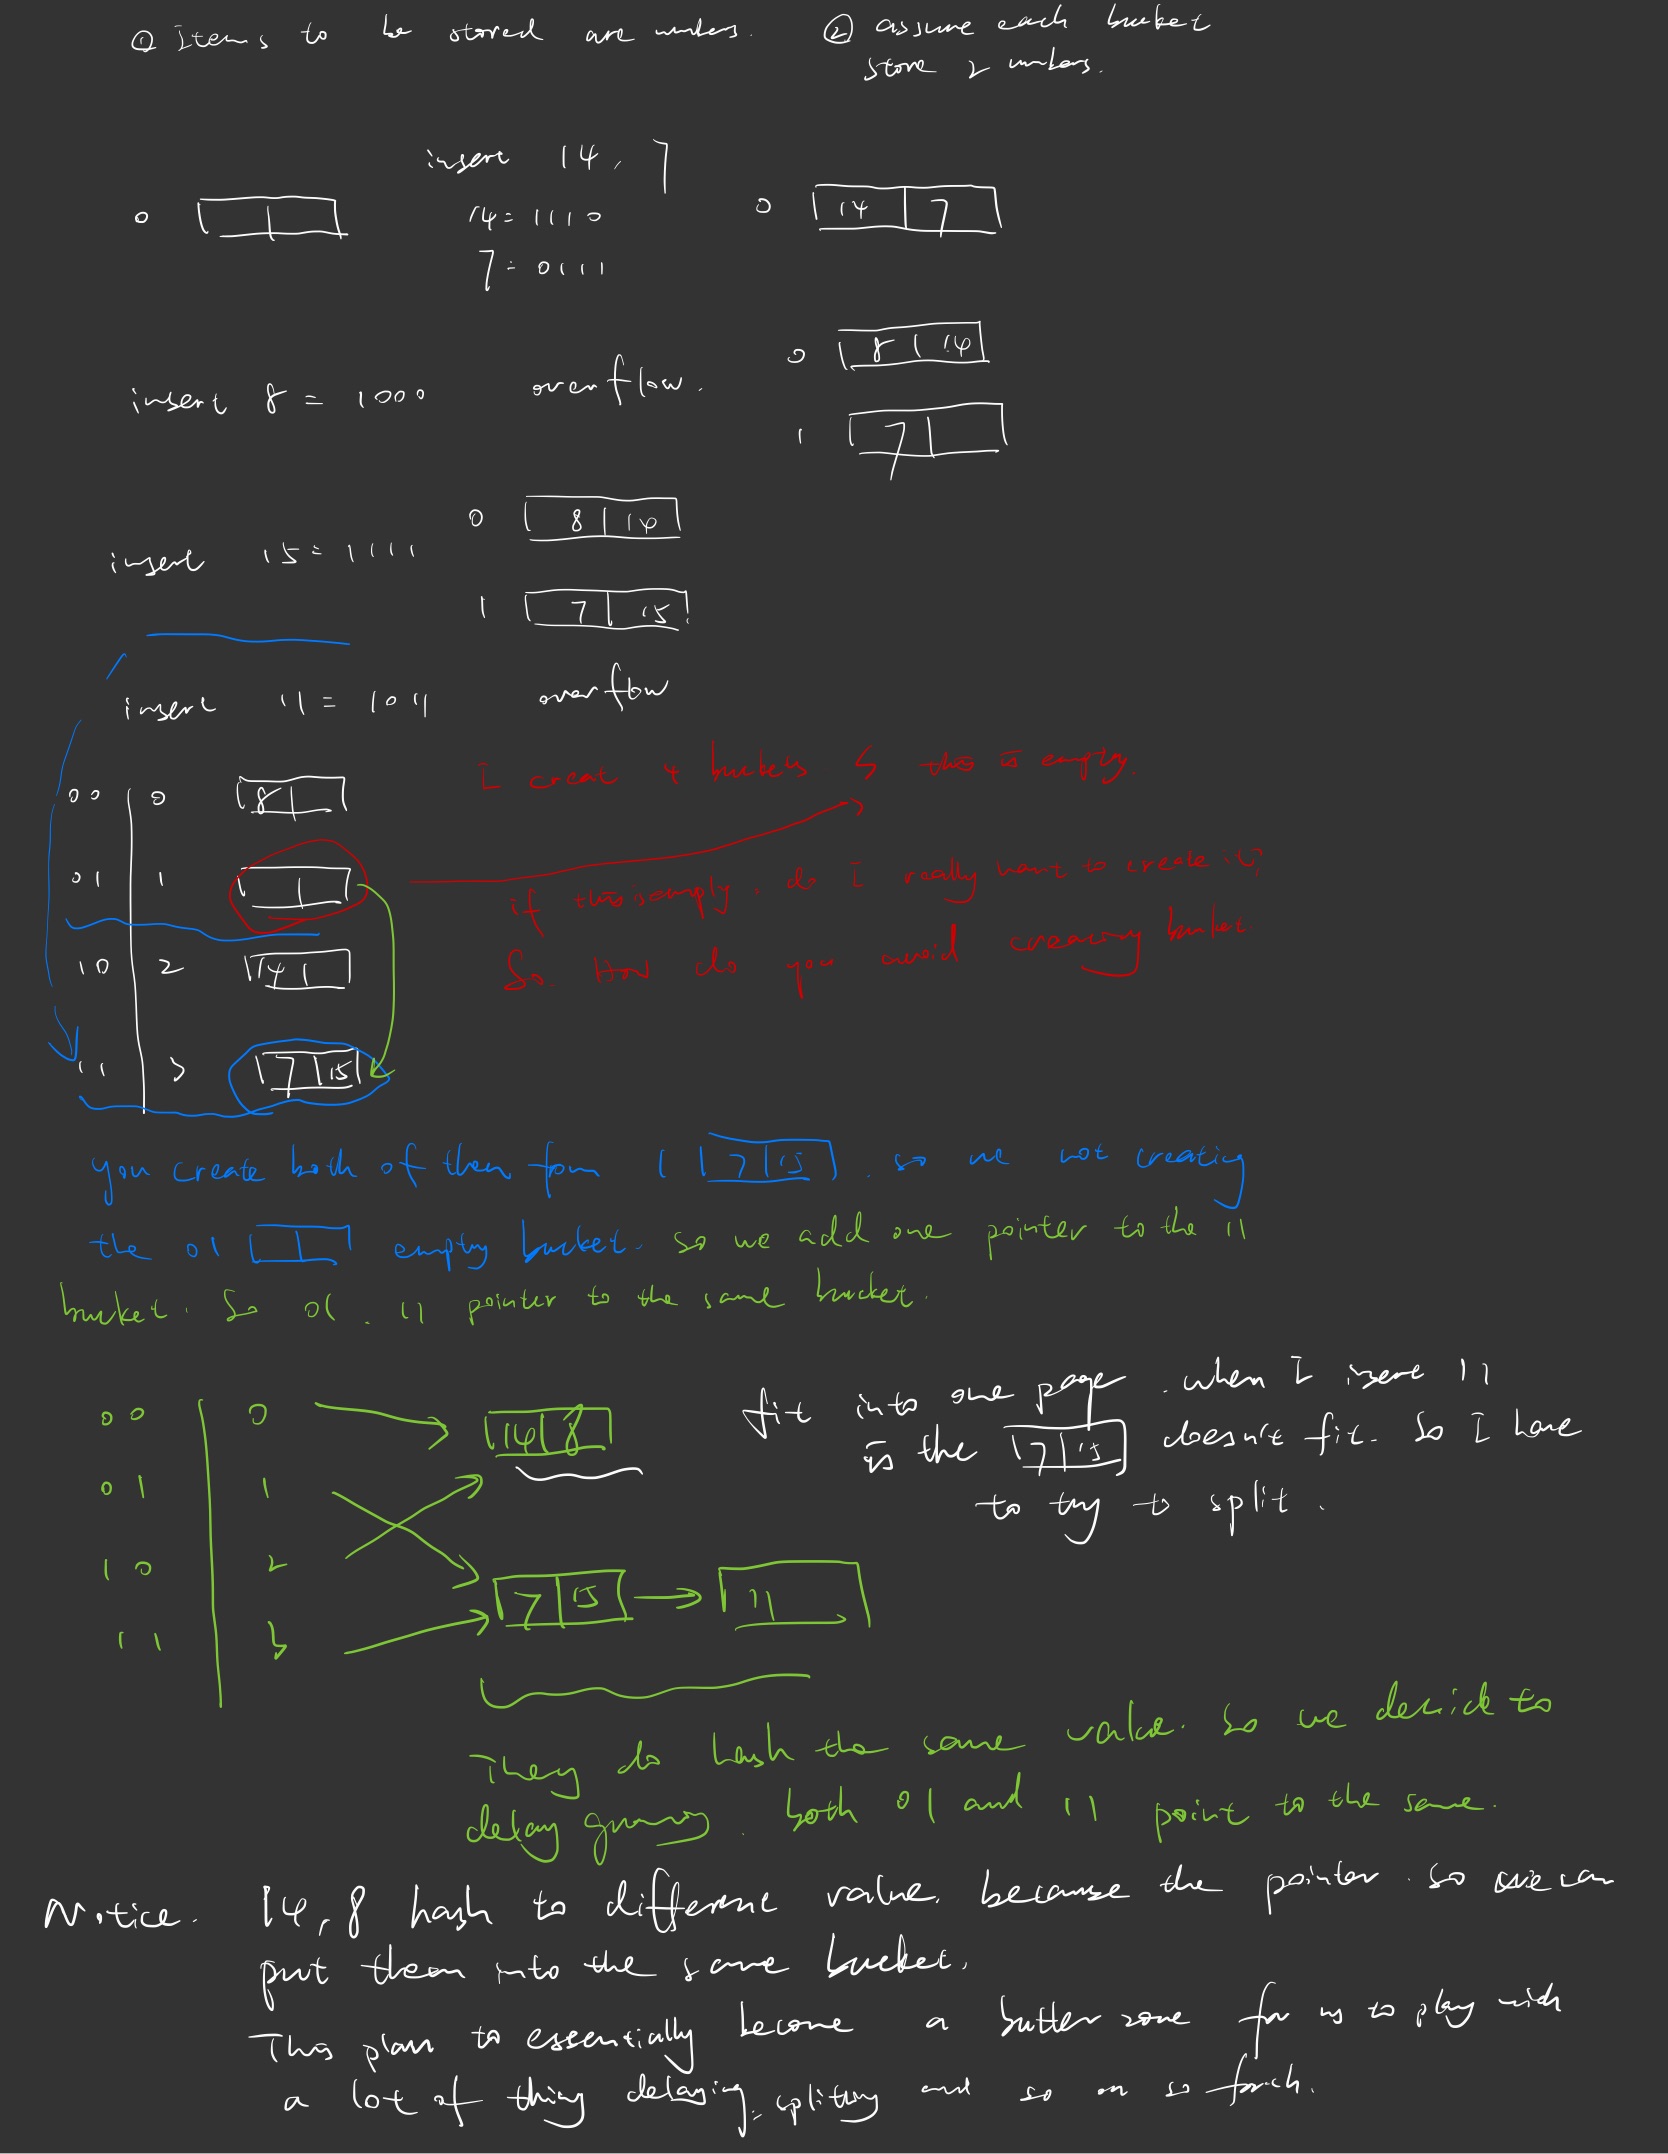 ① Items to be stored are numbers. ② assume each bucket
store 2 numbers.
insert 14, 7
0 14 = 1110 0 14 7
7 = 0111
0 8 14
insert 8 = 1000 overflow.
1 7
0 8 14
insert 15 = 1111
1 7 15
insert 11 = 1011 overflow
I creat 4 buckets this is empty.
00 0 8
01 1 if this is empty. do I really want to create it?
10 2 14 So. How do you avoid creating bucket.
11 3 7 15
you create both of them from 1 7 15. so we not creating
the 01 empty bucket. so we add one pointer to the 11
bucket. So 01. 11 pointer to the same bucket.
fit into one page. when I insert 11
00 0 14 8 is the 7 15 doesn't fit. So I have
01 1 to try to split.
10 2 7 15 11
11 3
They do hash the same value. so we decide to
delay. both 01 and 11 point to the same.
Notice. 14, 8 hash to different value. because the pointer. so we can
put them into the same bucket.
This plan to essentially become a butter zone for us to play with
a lot of thing delaying splitting and so on so forth.